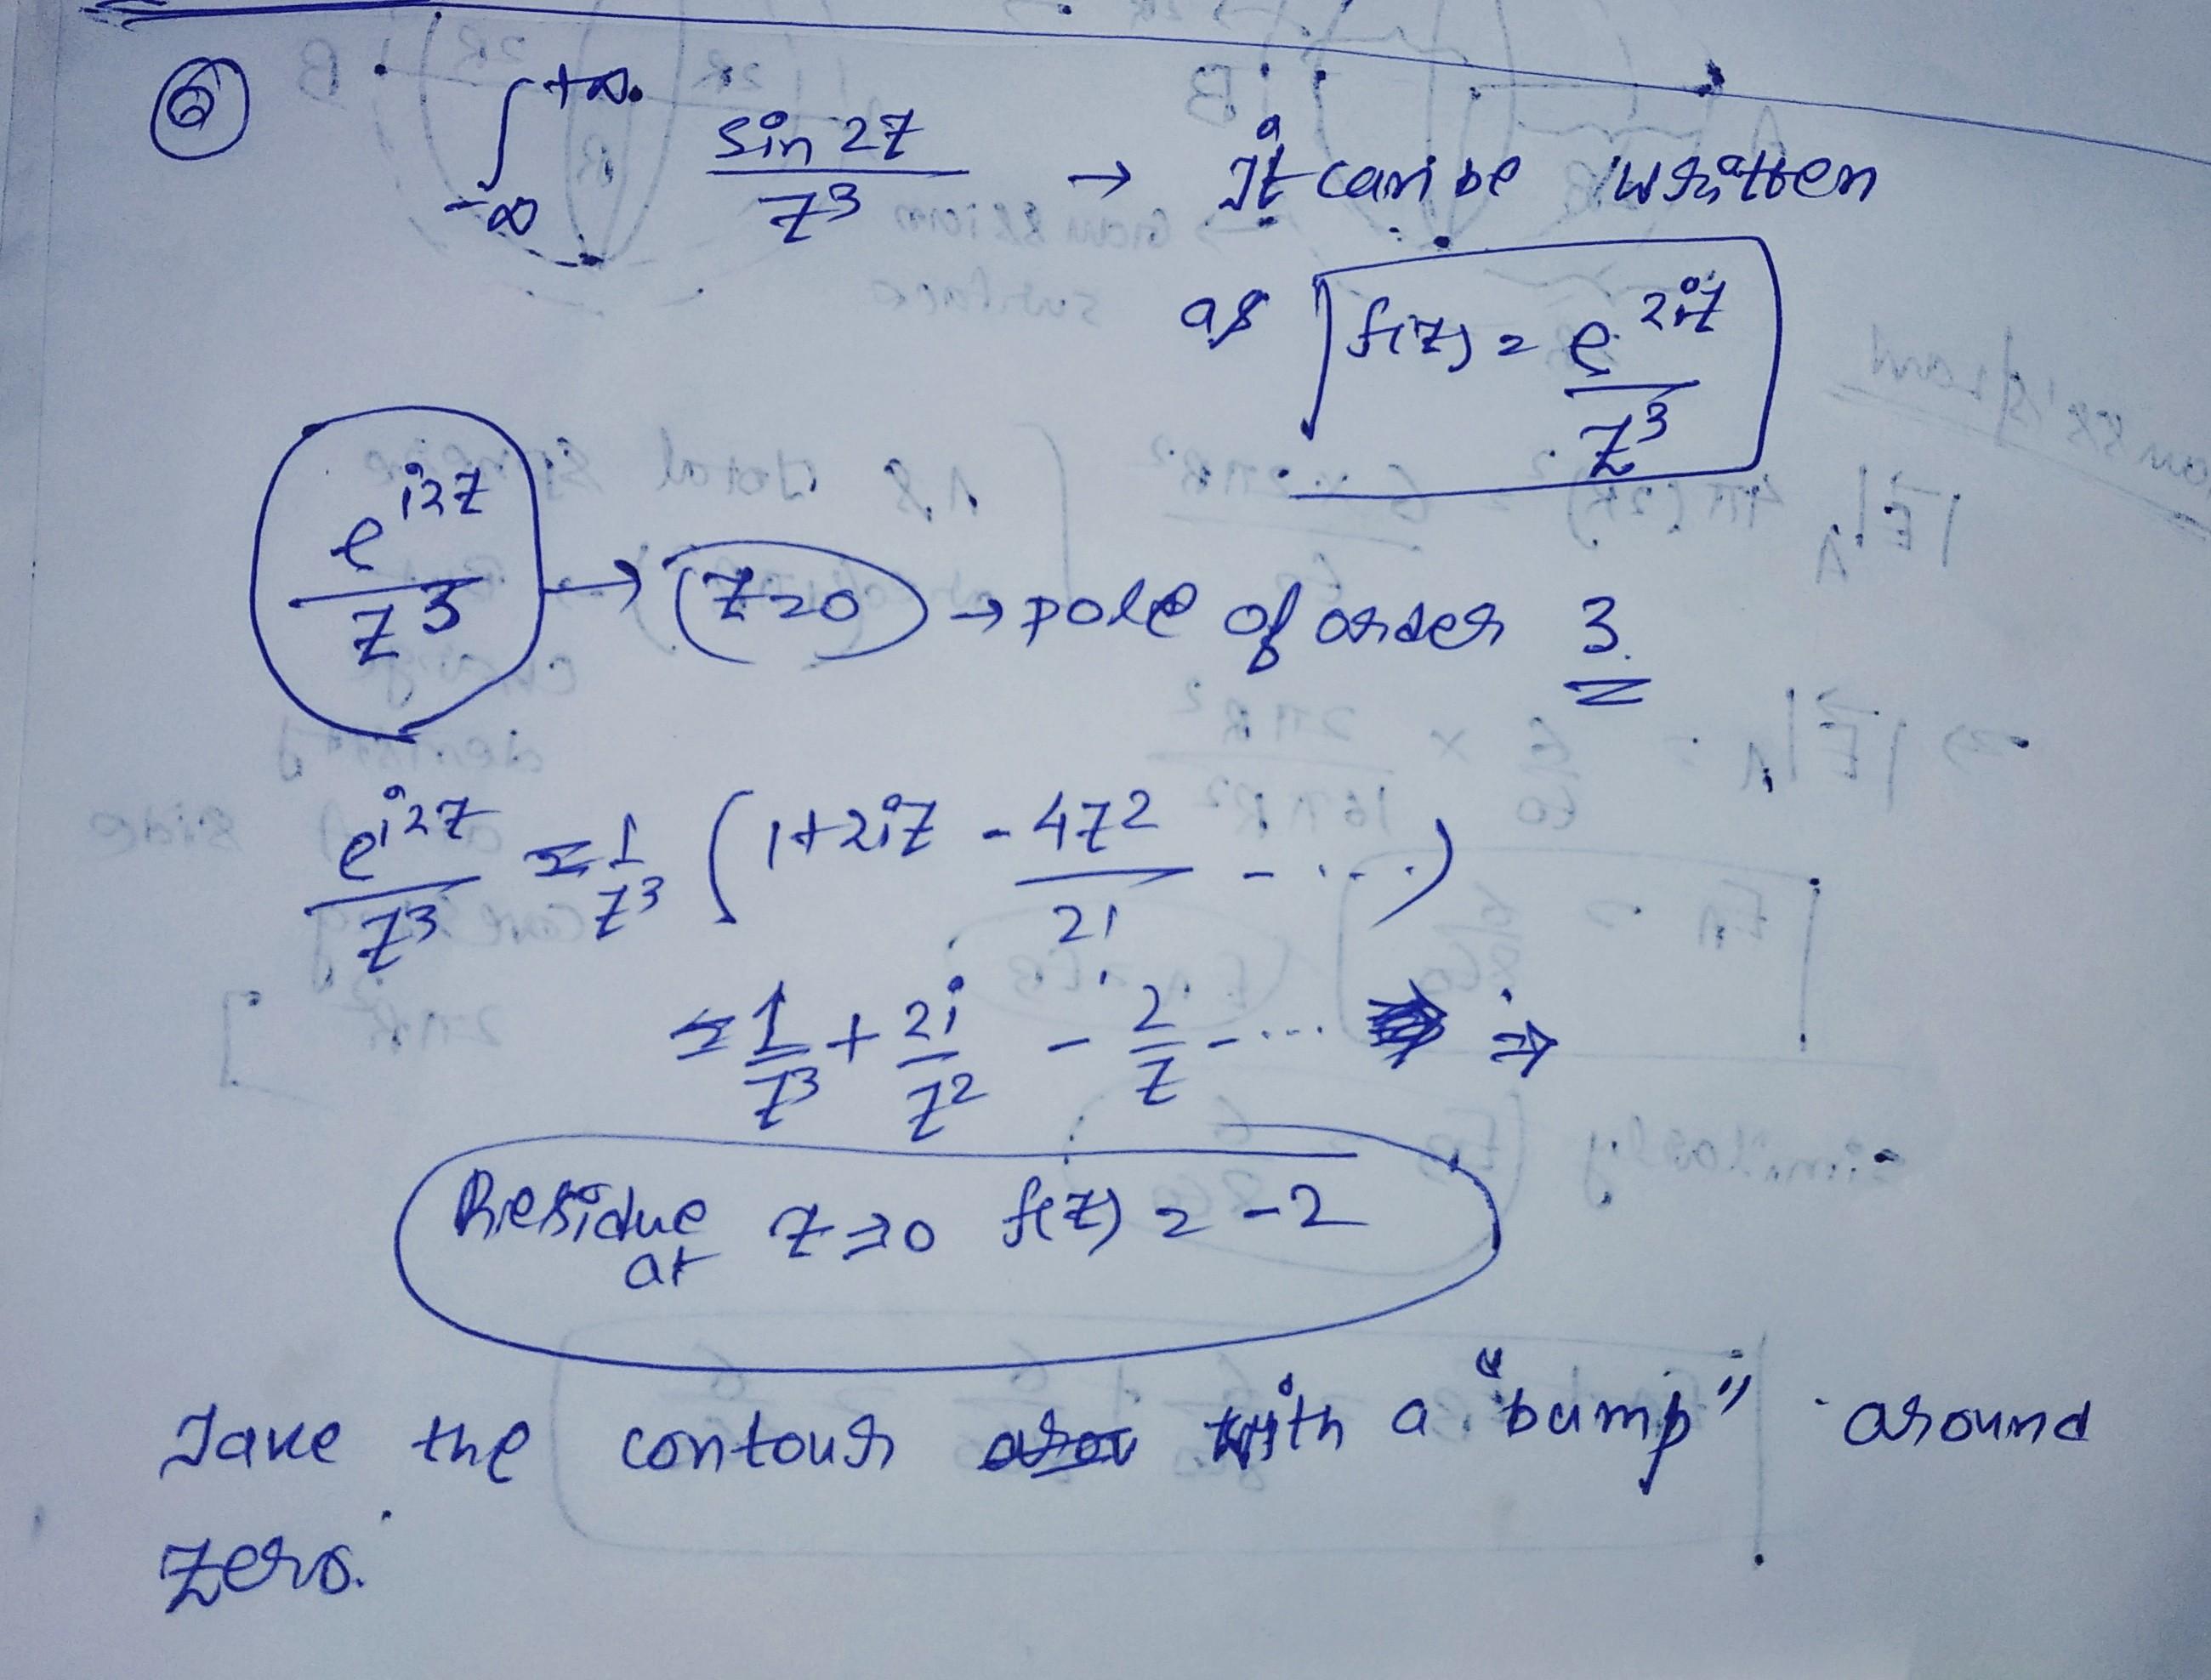 ⑥ ∫_{-∞}^{+∞} sin 2z / z^3 → It can be written
as f(z) = e^{2iz} / z^3
e^{i2z} / z^3 → z=0 → pole of order 3
e^{i2z} / z^3 = 1/z^3 (1+2iz - 4z^2/2! - ....)
= 1/z^3 + 2i/z^2 - 2/z - .... ⇒
Residue at z=0 f(z) = -2
Take the contour with a "bump" around
zero.